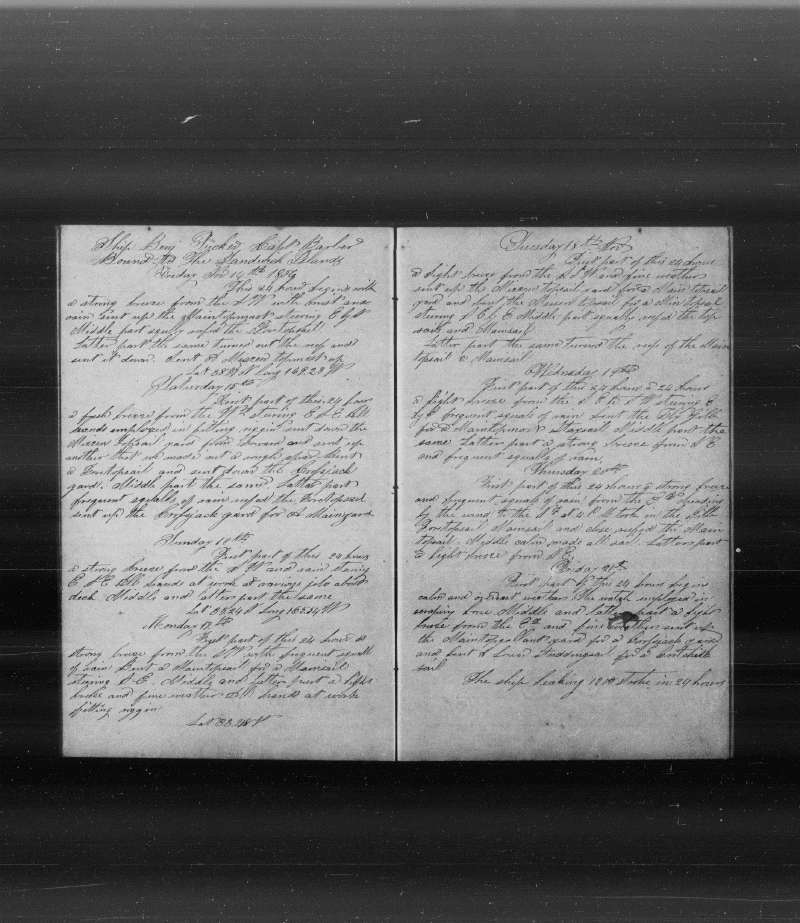 Ship Benj Tucker, Capt Barber
Bound to The Sandwich Islands
Friday Nov 14th 1856
This 24 hours begins with
a strong breeze from the S W with mist and
rain sent up the Maintopmast steering E by S
Middle part squally reefd the foretopsail
Latter part the same turned out the reef and
sent it down. Sent A Mizen topmast up
Lat 38 N Long 169.23 W
Saturday 15th
First part of this 24 hours
a fresh breeze from the Wd steering E S E All
hands employed in fitting riggin sent down the
Mizen topsail yard from forward and sent up
another that we made out a rough spar. Bent
a foretopsail and sent down the Crossjack
yard. Middle part the same Latter part
frequent squalls of rain reefed the foretopsail
sent up the Crossjack yard for A Mainyard
Sunday 16th
First part of this 24 hours
a strong breeze from the S W and rain steering
E S E. All hands at work at various jobs about
deck Middle and latter part the same
Lat 33.24 Long 165.54 W
Monday 17th
First part of this 24 hours a
strong breeze from the S W with frequent squalls
of rain Bent a Maintopsail for a Mainsail
steering E S E. Middle and Latter part a light
breeze and fine weather All hands at work
fitting riggin
Lat 33.48 N
Tuesday 18th Nov
First part of this 24 hours
a light breeze from the S S W and fine weather
sent up the Mizen topsail yard for a Main topsail
yard and bent the Mizen topsail for a Maintopsail
steering S E by E Middle part squally reefd the top
sails and Mainsail
Latter part the same turned the reefs of the Main
topsail & Mainsail
Wednesday 19th
First part of the 24 hours
a light breeze from the S E to S W steering E
by S frequent squals of rain bent the Fly Gibb
for a Maintopmast Staysail Middle part the
same Latter part a strong breeze from S E
and frequent squalls of rain
Thursday 20th
First part of this 24 hours a strong breeze
and frequent squals of rain from the Ed
by the wind to the Sd at 4 P M took in the Gibb
Foretopsail Mainsail and close reefed the Main
topsail. Middle calm made all sail. Latter part
a light breeze from N E
Friday 21st
First part of this 24 hours begin
calm and weather The watch employed in
scraping bone Middle and Latter part a light
breeze from the Ed and fine weather sent up
the Maintopgallant yard for a Crossjack yard
and bent a Lower Studdingsail for a
sail
The ship leaking 1200 stroke in 24 hours